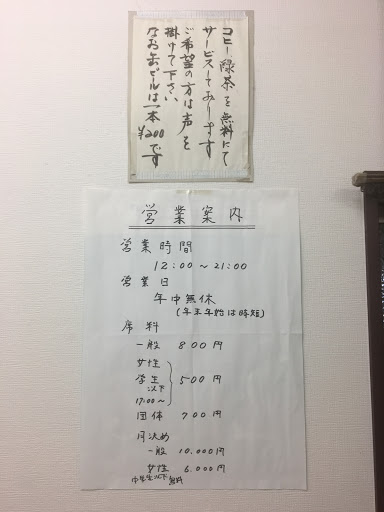 コヒー緑茶を無料にて
サービスしております
ご希望の方は声を
掛けて下さい
なお缶ビールは一本
¥200です
営業案内
営業時間
12:00～21:00
営業日
年中無休
(年末年始は時短)
席料
一般 800円
女性
学生以下 500円
17:00～
団体 700円
月決め
一般 10.000円
女性 6.000円
中学生以下無料